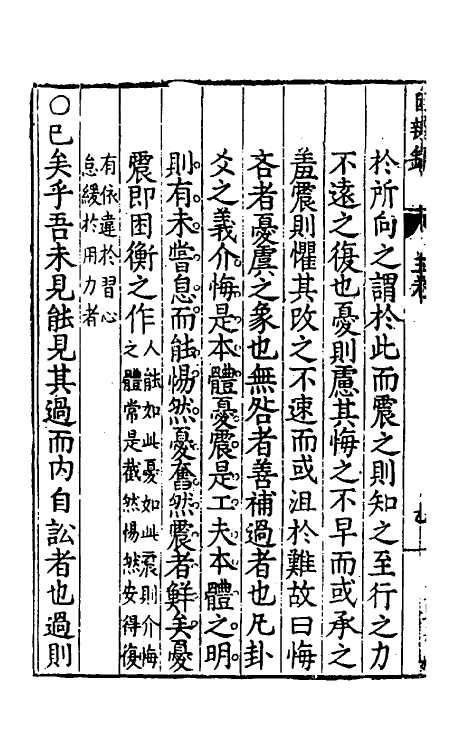 於所向之謂於此而震之則知之至行之力
不遠之復也憂則慮其悔之不早而或承之
羞震則懼其改之不速而或沮於難故曰悔
吝者憂虞之象也無咎者善補過者也凡卦
爻之義介悔是本體憂震是工夫本體之明
則有未嘗息而能惕然憂奮然震者鮮矣憂
震即困衡之作人能如此憂如此震則介悔
之體常是截然惕然安得復
有依違於習心
怠緩於用力者
○已矣乎吾未見能見其過而內自訟者也過則